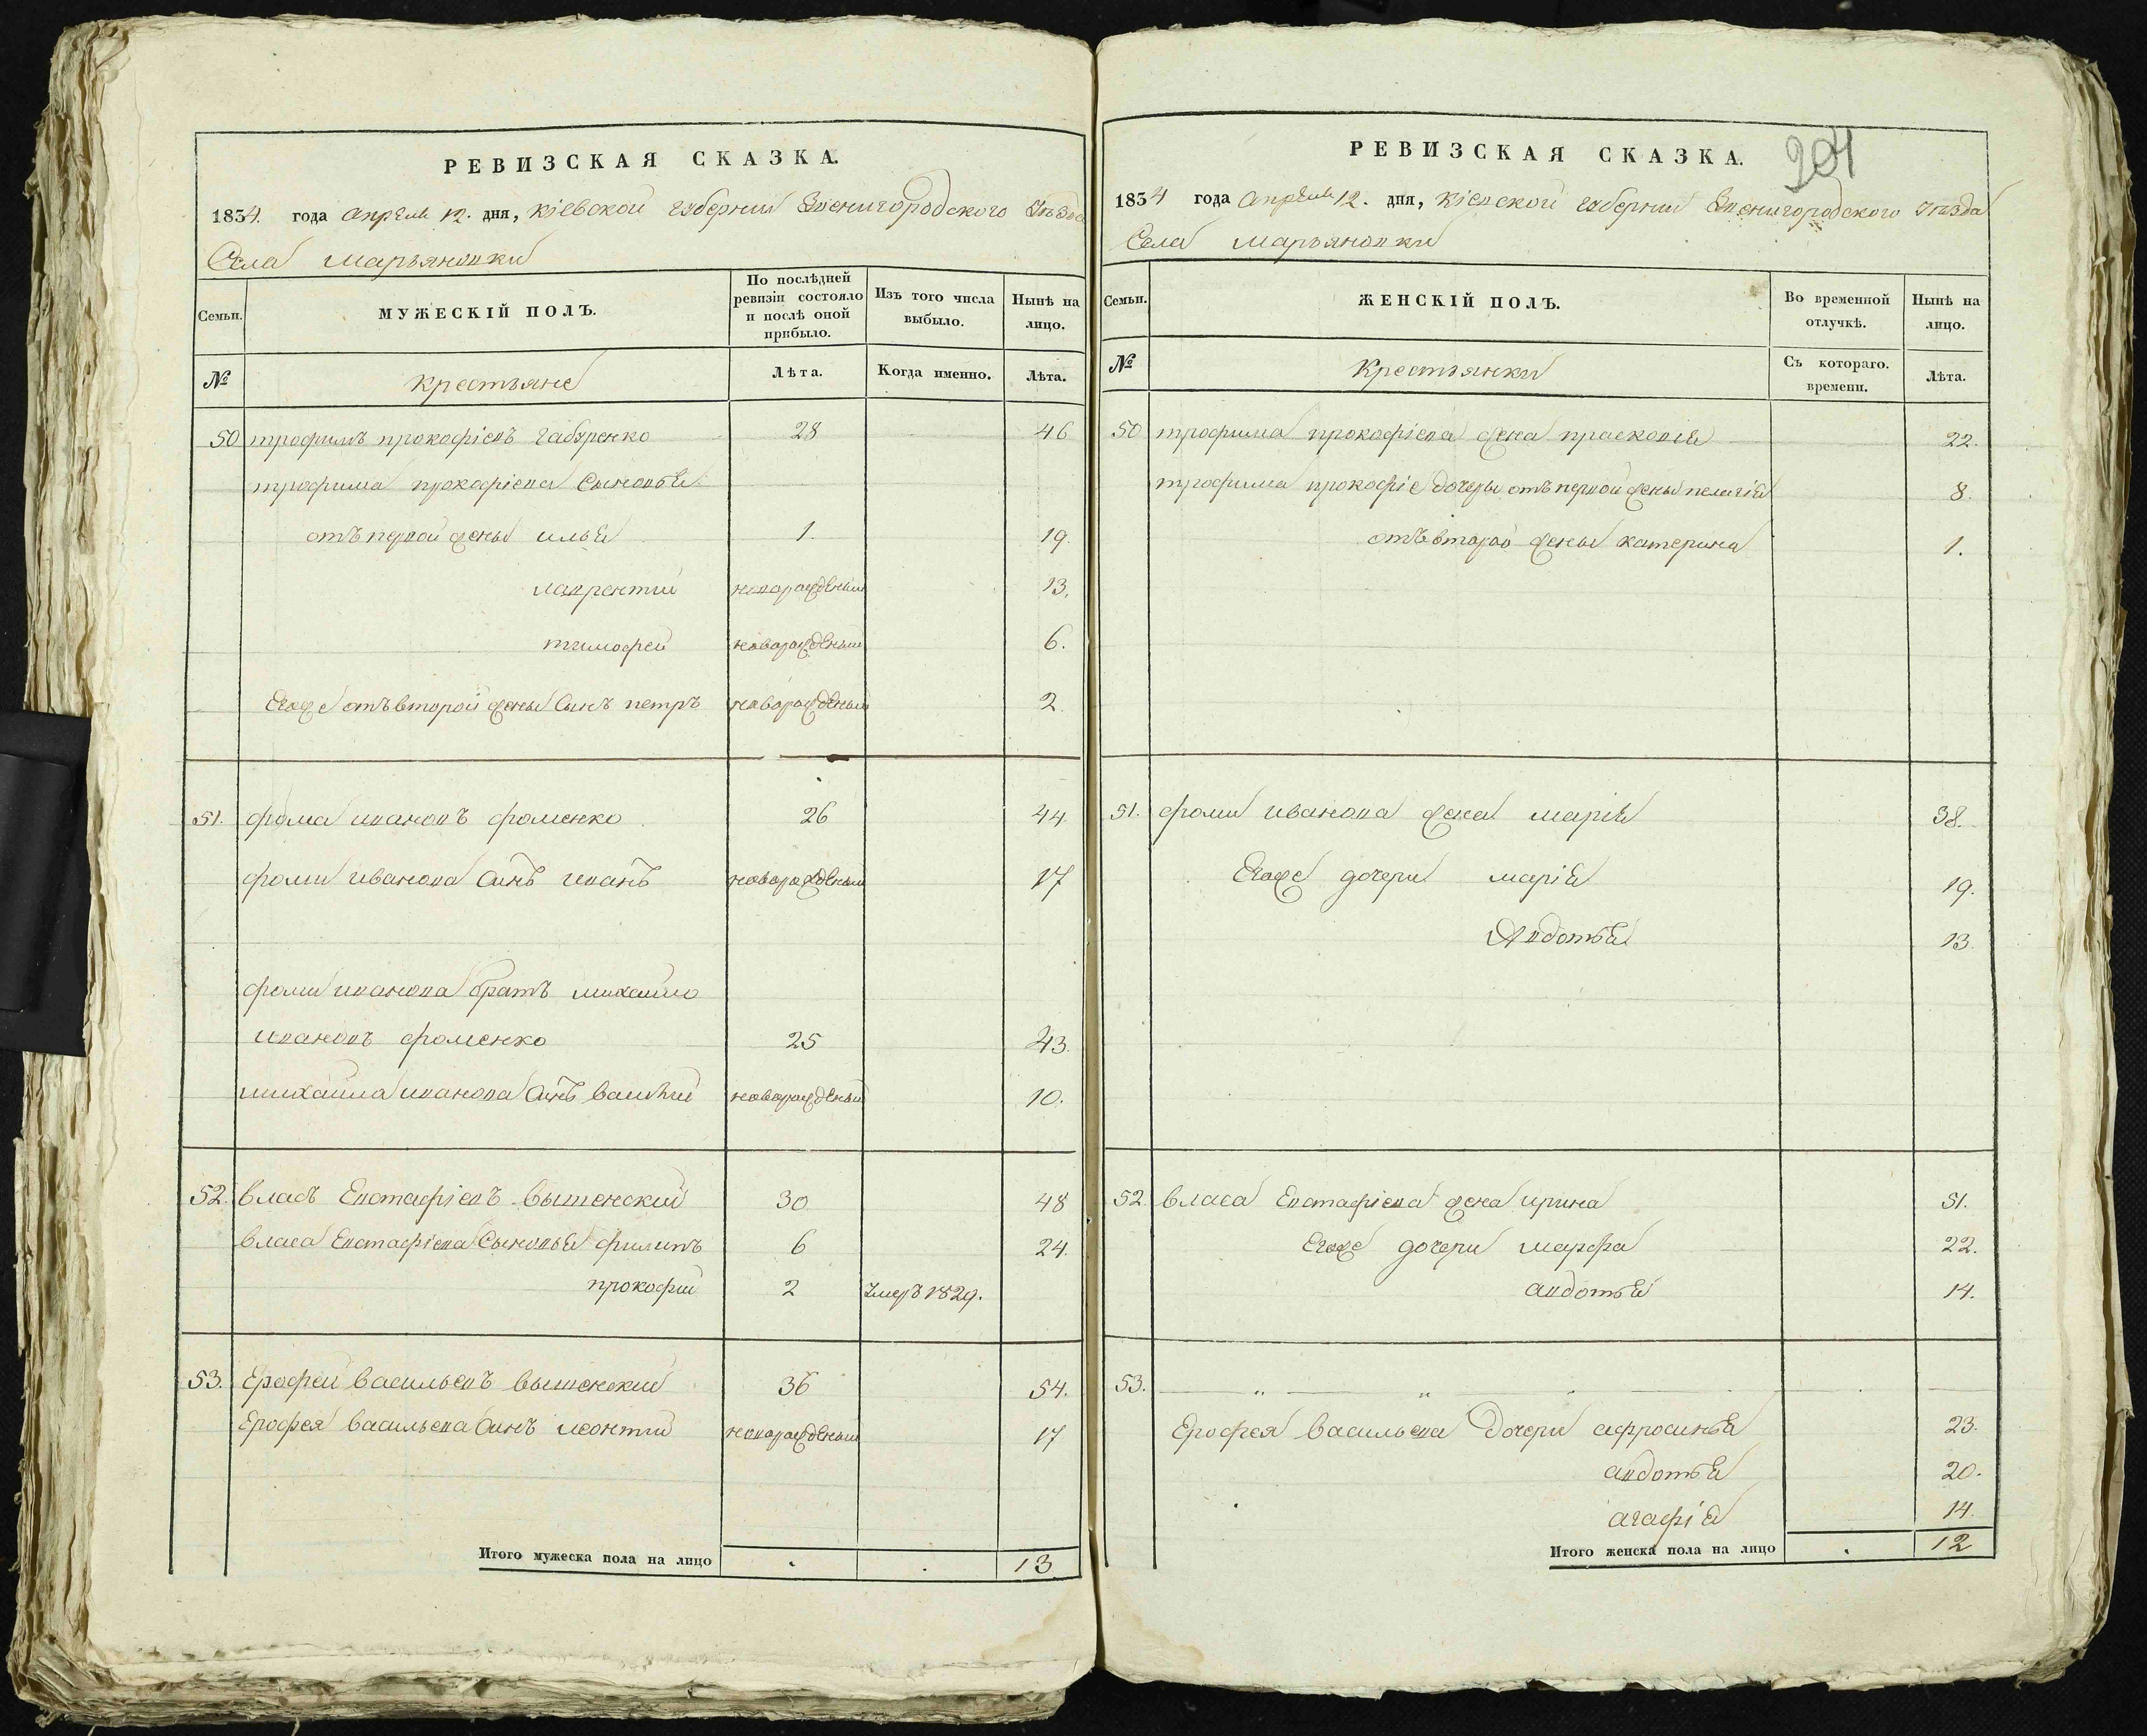 РЕВИЗСКАЯ СКАЗКА.
1834. года Апрѣля 12. дня, Кіевской губерніи Звенигородского Уѣзда
Села Марьяновки
Семьи.
МУЖЕСКІЙ ПОЛЪ.
По послѣдней ревизіи состояло и послѣ оной прибыло.
Изъ того числа выбыло.
Нынѣ на лицо.
№
Крестьяне
Лѣта.
Когда именно.
Лѣта.
50 трофимъ прокофіевъ габуренко 28 46
трофима прокофіева Сыновья
отъ первой жены илья 1. 19.
лаврентий новорожденый 13.
тимофей новорожденый 6.
Егоже отъ второй жены Сынъ петръ новорожденый 2
51. фома ивановъ фоменко 26 44
фоми иванова Синъ иванъ новорожденый 17
фоми иванова братъ михайло
ивановъ фоменко 25 43.
михайла иванова Синъ василий новорожденый 10.
52. Власъ Евстафіевъ вышенский 30 48
власа Евстафіева Сыновья филипъ 6 24.
прокофий 2 Умеръ 1829.
53. Ерофей васильевъ вышенский 36 54.
Ерофея васильева Синъ леонтий новорожденый 17
Итого мужеска пола на лицо . . 13
204
РЕВИЗСКАЯ СКАЗКА.
1834 года Апрѣля 12. дня, Кіевской губерніи Звенигородского Уѣзда
Села Марьяновки
Семьи.
ЖЕНСКІЙ ПОЛЪ.
Во временной отлучкѣ.
Нынѣ на лицо.
№
Крестьянки
Съ котораго. времени.
Лѣта.
50 трофима прокофіева жена прасковія 22.
трофима прокофіе дочеры отъ первой жены пелагія 8.
отъ второ жены катерина 1.
51. фоми иванова жена марія 38.
Егоже дочери марія 19.
Авдотья 13
52 власа Евстафіева жена ирина 51.
Егоже дочери марфа 22.
авдотья 14.
53. „ „ „
Ерофея васильева Дочери афросинья 23.
авдотья 20.
агафія 14.
Итого женска пола на лицо . 12